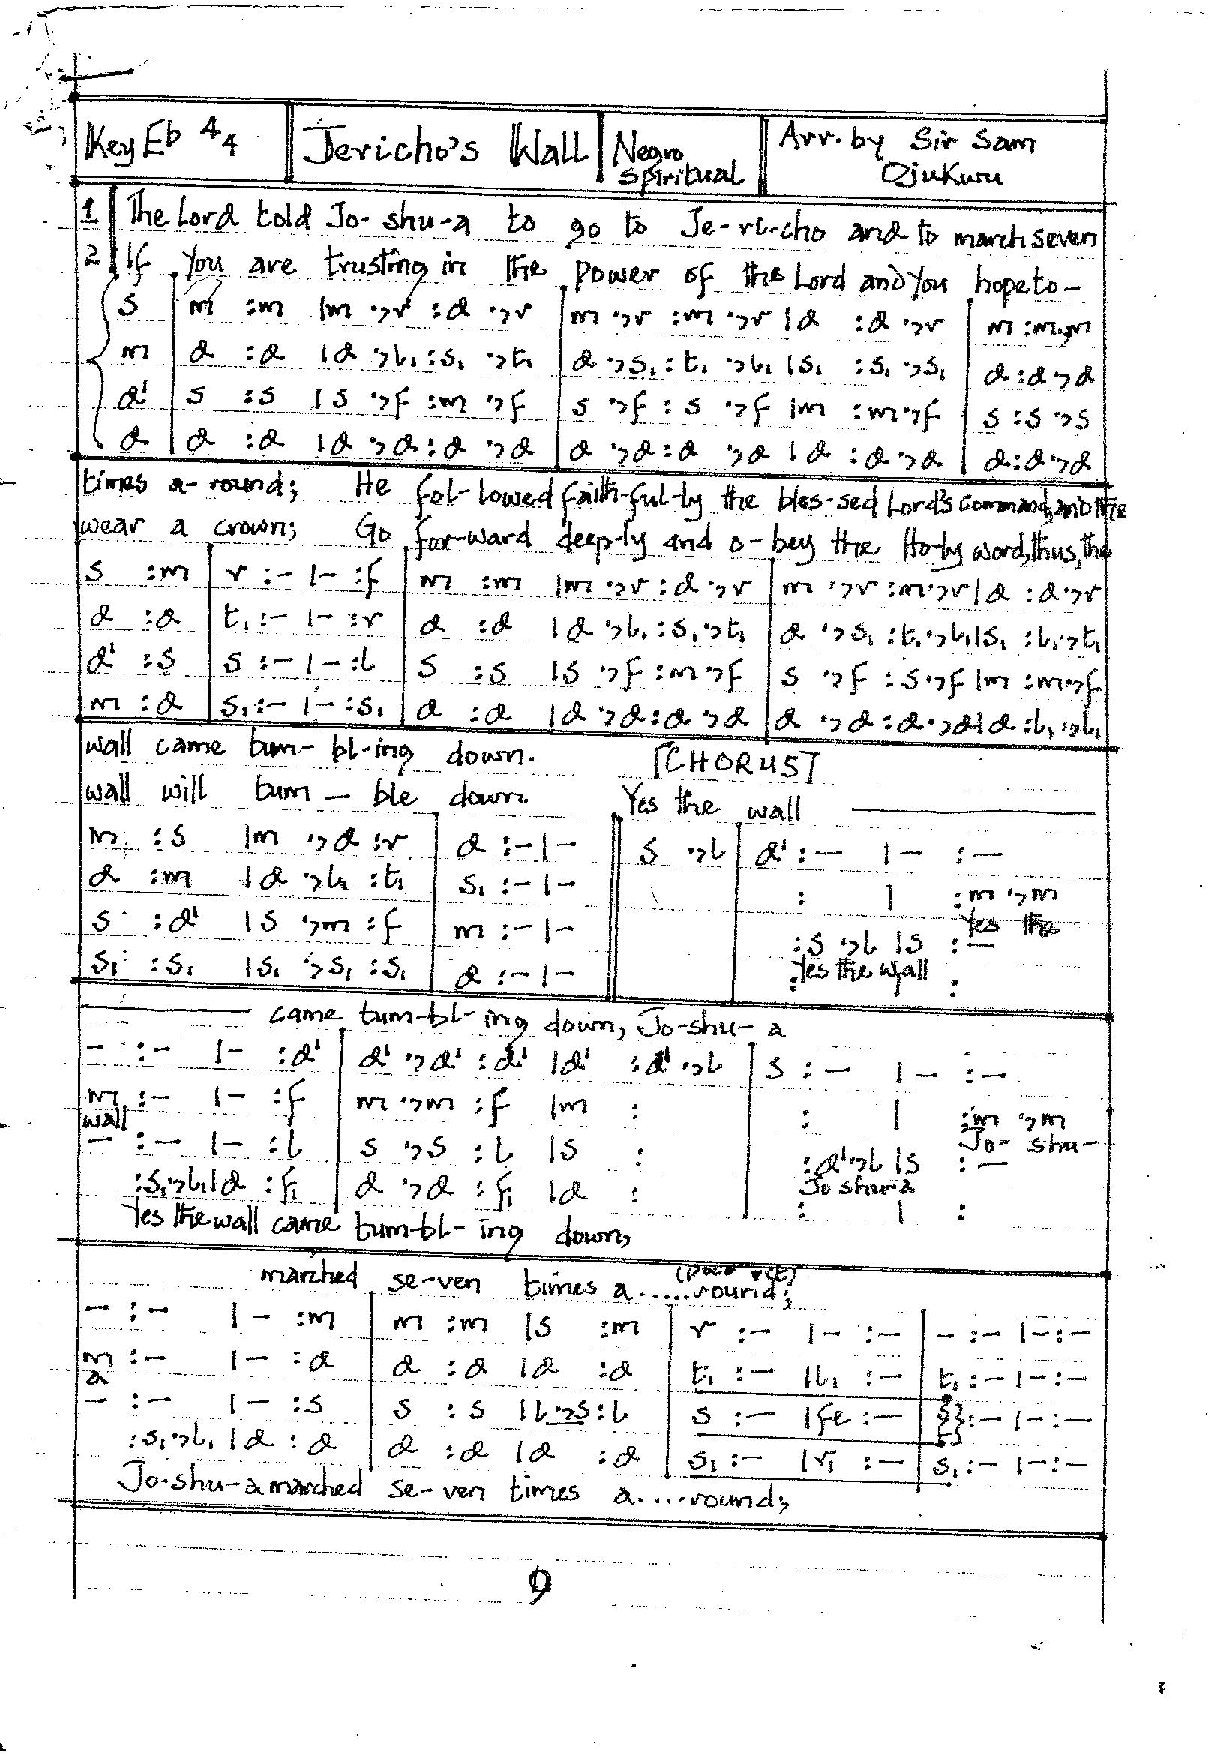 Key Eb 4/4 Jericho's Wall Negro Spiritual Arr. by Sir Sam Ojukwu
1 The Lord told Jo-shu-a to go to Je-ri-cho and to march seven
2 If you are trusting in the power of the Lord and you hope to-
s | m :m |m ., r :d ., r | m ., r :m ., r |d :d ., r | m :m., m
m | d :d |d ., l₁ :s₁ ., t₁ | d ., s₁ :t₁ ., l₁ |s₁ :s₁ ., s₁ | d :d ., d
d' | s :s |s ., f :m ., f | s ., f :s ., f |m :m ., f | s :s ., s
d | d :d |d ., d :d ., d | d ., d :d ., d |d :d ., d | d :d ., d
times a-round; He fol-lowed faith-ful-ly the bles-sed Lord's command, and the
wear a crown; Go for-ward deep-ly and o-bey the Ho-ly word, thus, the
s :m | r :- |- :f | m :m |m ., r :d ., r | m ., r :m ., r |d :d ., r
d :d | t₁ :- |- :r | d :d |d ., l₁ :s₁ ., t₁ | d ., s₁ :t₁ ., l₁ |s₁ :l₁ ., t₁
d' :s | s :- |- :l | s :s |s ., f :m ., f | s ., f :s ., f |m :m ., f
m :d | s₁ :- |- :s₁ | d :d |d ., d :d ., d | d ., d :d ., d |d :l₁ ., l₁
wall came tum-bl-ing down. [CHORUS]
wall will tum-ble down. Yes the wall
m :s |m ., d :r | d :- |- || s ., l | d' :- |- :-
d :m |d ., l₁ :t₁ | s₁ :- |- || : | :m ., m
Yes the
s :d' |s ., m :f | m :- |- || :s ., l |s :-
Yes the wall
s₁ :s₁ |s₁ ., s₁ :s₁ | d :- |- || : :
came tum-bl-ing down, Jo-shu-a
- :- |- :d' | d' ., d' :d' |d' :d' ., l | s :- |- :-
m :- |- :f | m ., m :f |m : | : | :m ., m
wall Jo-shu-
- :- |- :l | s ., s :l |s : | :d' ., l |s :-
Jo shu a
:s₁ ., l₁ |d :f₁ | d ., d :f₁ |d : | : | :
Yes the wall came tum-bl-ing down,
marched se-ven times a.....round;
(poco rit)
- :- |- :m | m :m |s :m | r :- |- :- | - :- |- :-
m :- |- :d | d :d |d :d | t₁ :- |l₁ :- | t₁ :- |- :-
a
- :- |- :s | s :s |l ., s :l | s :- |fe :- | :- |- :-
:s₁ ., l₁ |d :d | d :d |d :d | s₁ :- |r₁ :- | s₁ :- |- :-
Jo-shu-a marched se-ven times a....round;
9